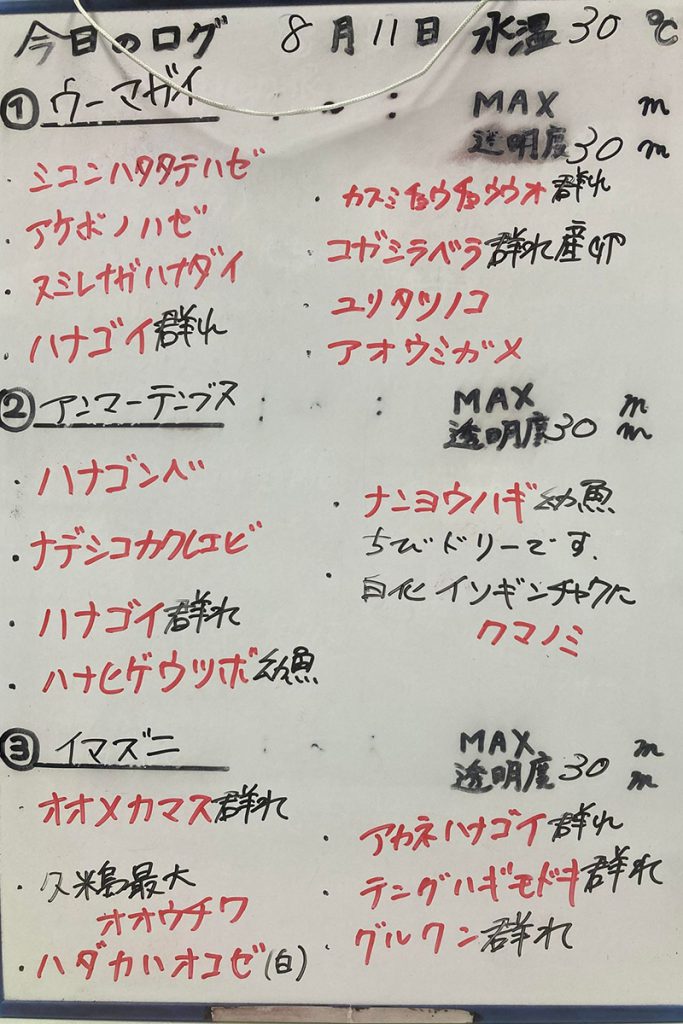 今日のログ 8月11日 水温30℃
① ウーマガイ : ~ : MAX m
透明度30m
・ミコンハタタテハゼ
・アケボノハゼ
・スミレナガハナダイ
・ハナゴイ群れ
・カスミチョウチョウウオ群れ
・コガシラベラ群れ産卵
・ユリタツノコ
・アオウミガメ
② アンマーテンブス : : MAX m
透明度30m
・ハナゴンベ
・ナデシコカクレエビ
・ハナゴイ群れ
・ハナヒゲウツボ幼魚
・ナンヨウハギ幼魚
ちびドリーです.
・白化イソギンチャクに
クマノミ
③ イマズニ : ~ : MAX m
透明度30m
・オオメカマス群れ
・久米島最大
オオウチワ
・ハダカハオコゼ(白)
・アカネハナゴイ群れ
・テングハギモドキ群れ
・グルクン群れ